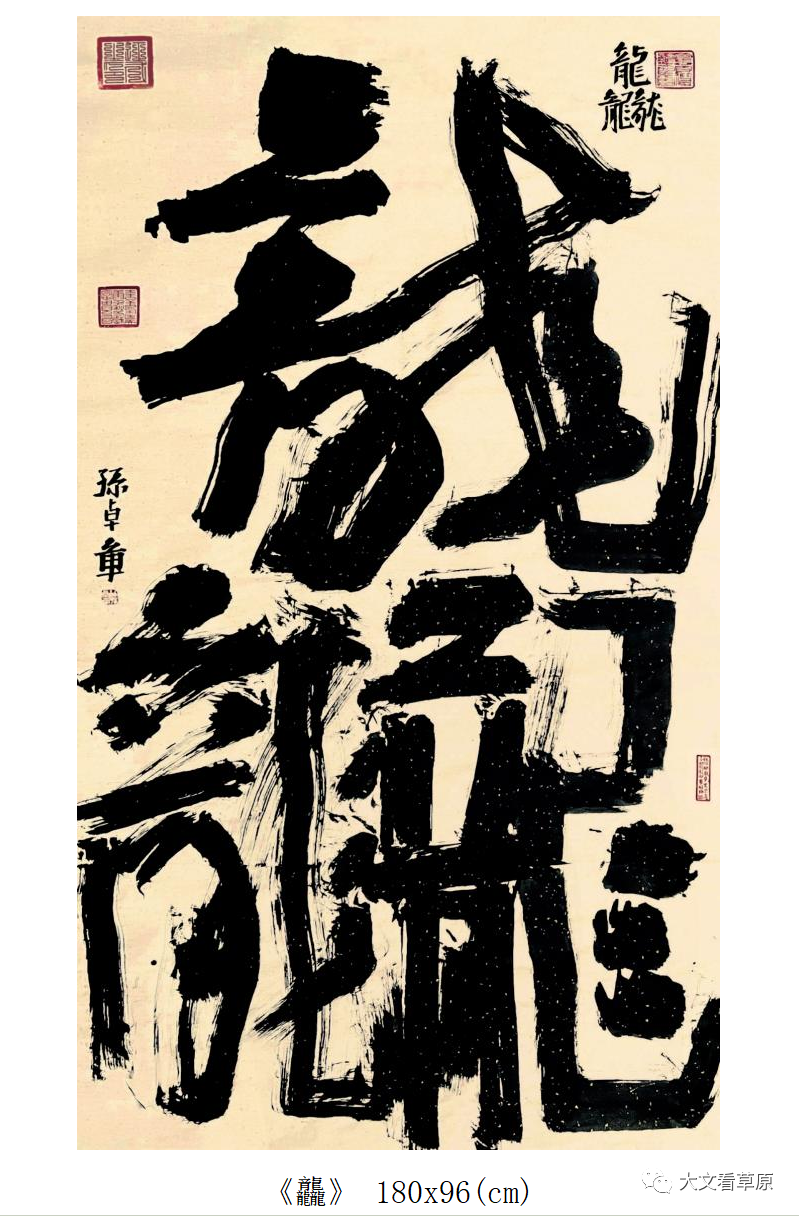 龘
龘
孫卓章
《龘》 180x96(cm)
大文看草原